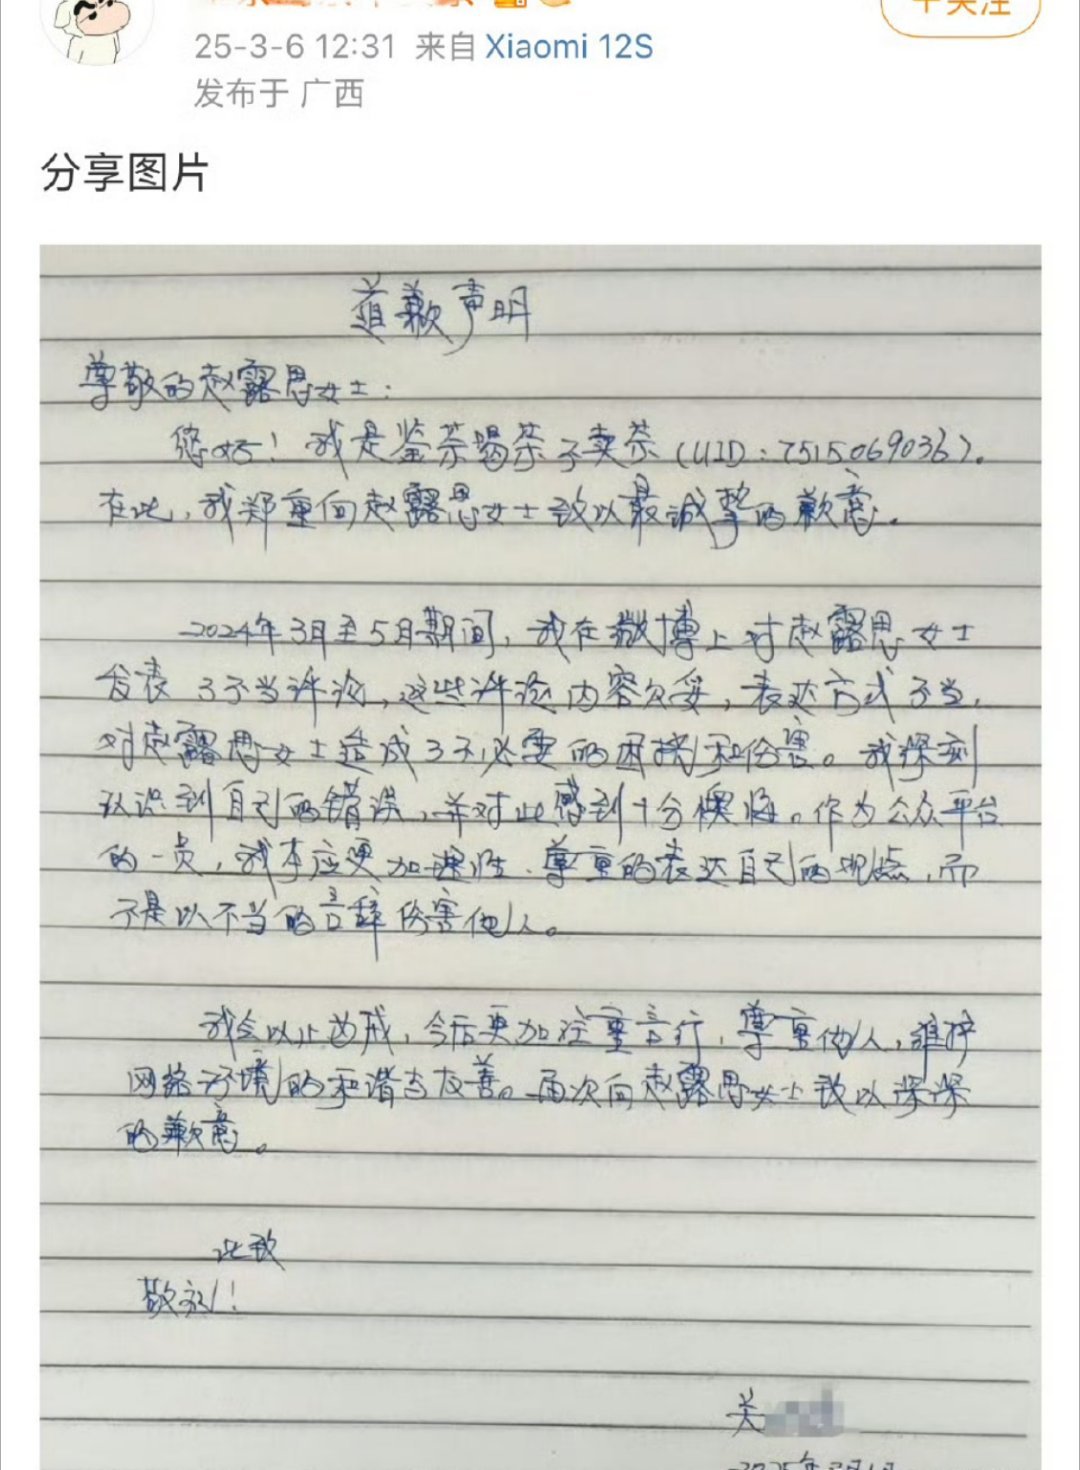 +关注
25-3-6 12:31 来自 Xiaomi 12S
发布于 广西
分享图片
道歉声明
尊敬的赵露思女士:
您好!我是鉴茶喝茶不卖茶(UID:7515069036)。
在此,我郑重向赵露思女士致以最诚挚的歉意。
2024年3月至5月期间,我在微博上对赵露思女士
发表了不当评论,这些评论内容欠妥,表达方式不当,
对赵露思女士造成了不必要的困扰和伤害。我深刻
认识到自己的错误,并对此感到十分懊悔。作为公众平台
的一员,我本应更加理性、尊重的表达自己的观点,而
不是以不当的言辞伤害他人。
我会以此为戒,今后更加注重言行,尊重他人,维护
网络环境的和谐与友善。再次向赵露思女士致以深深
的歉意。
此致
敬礼!
关